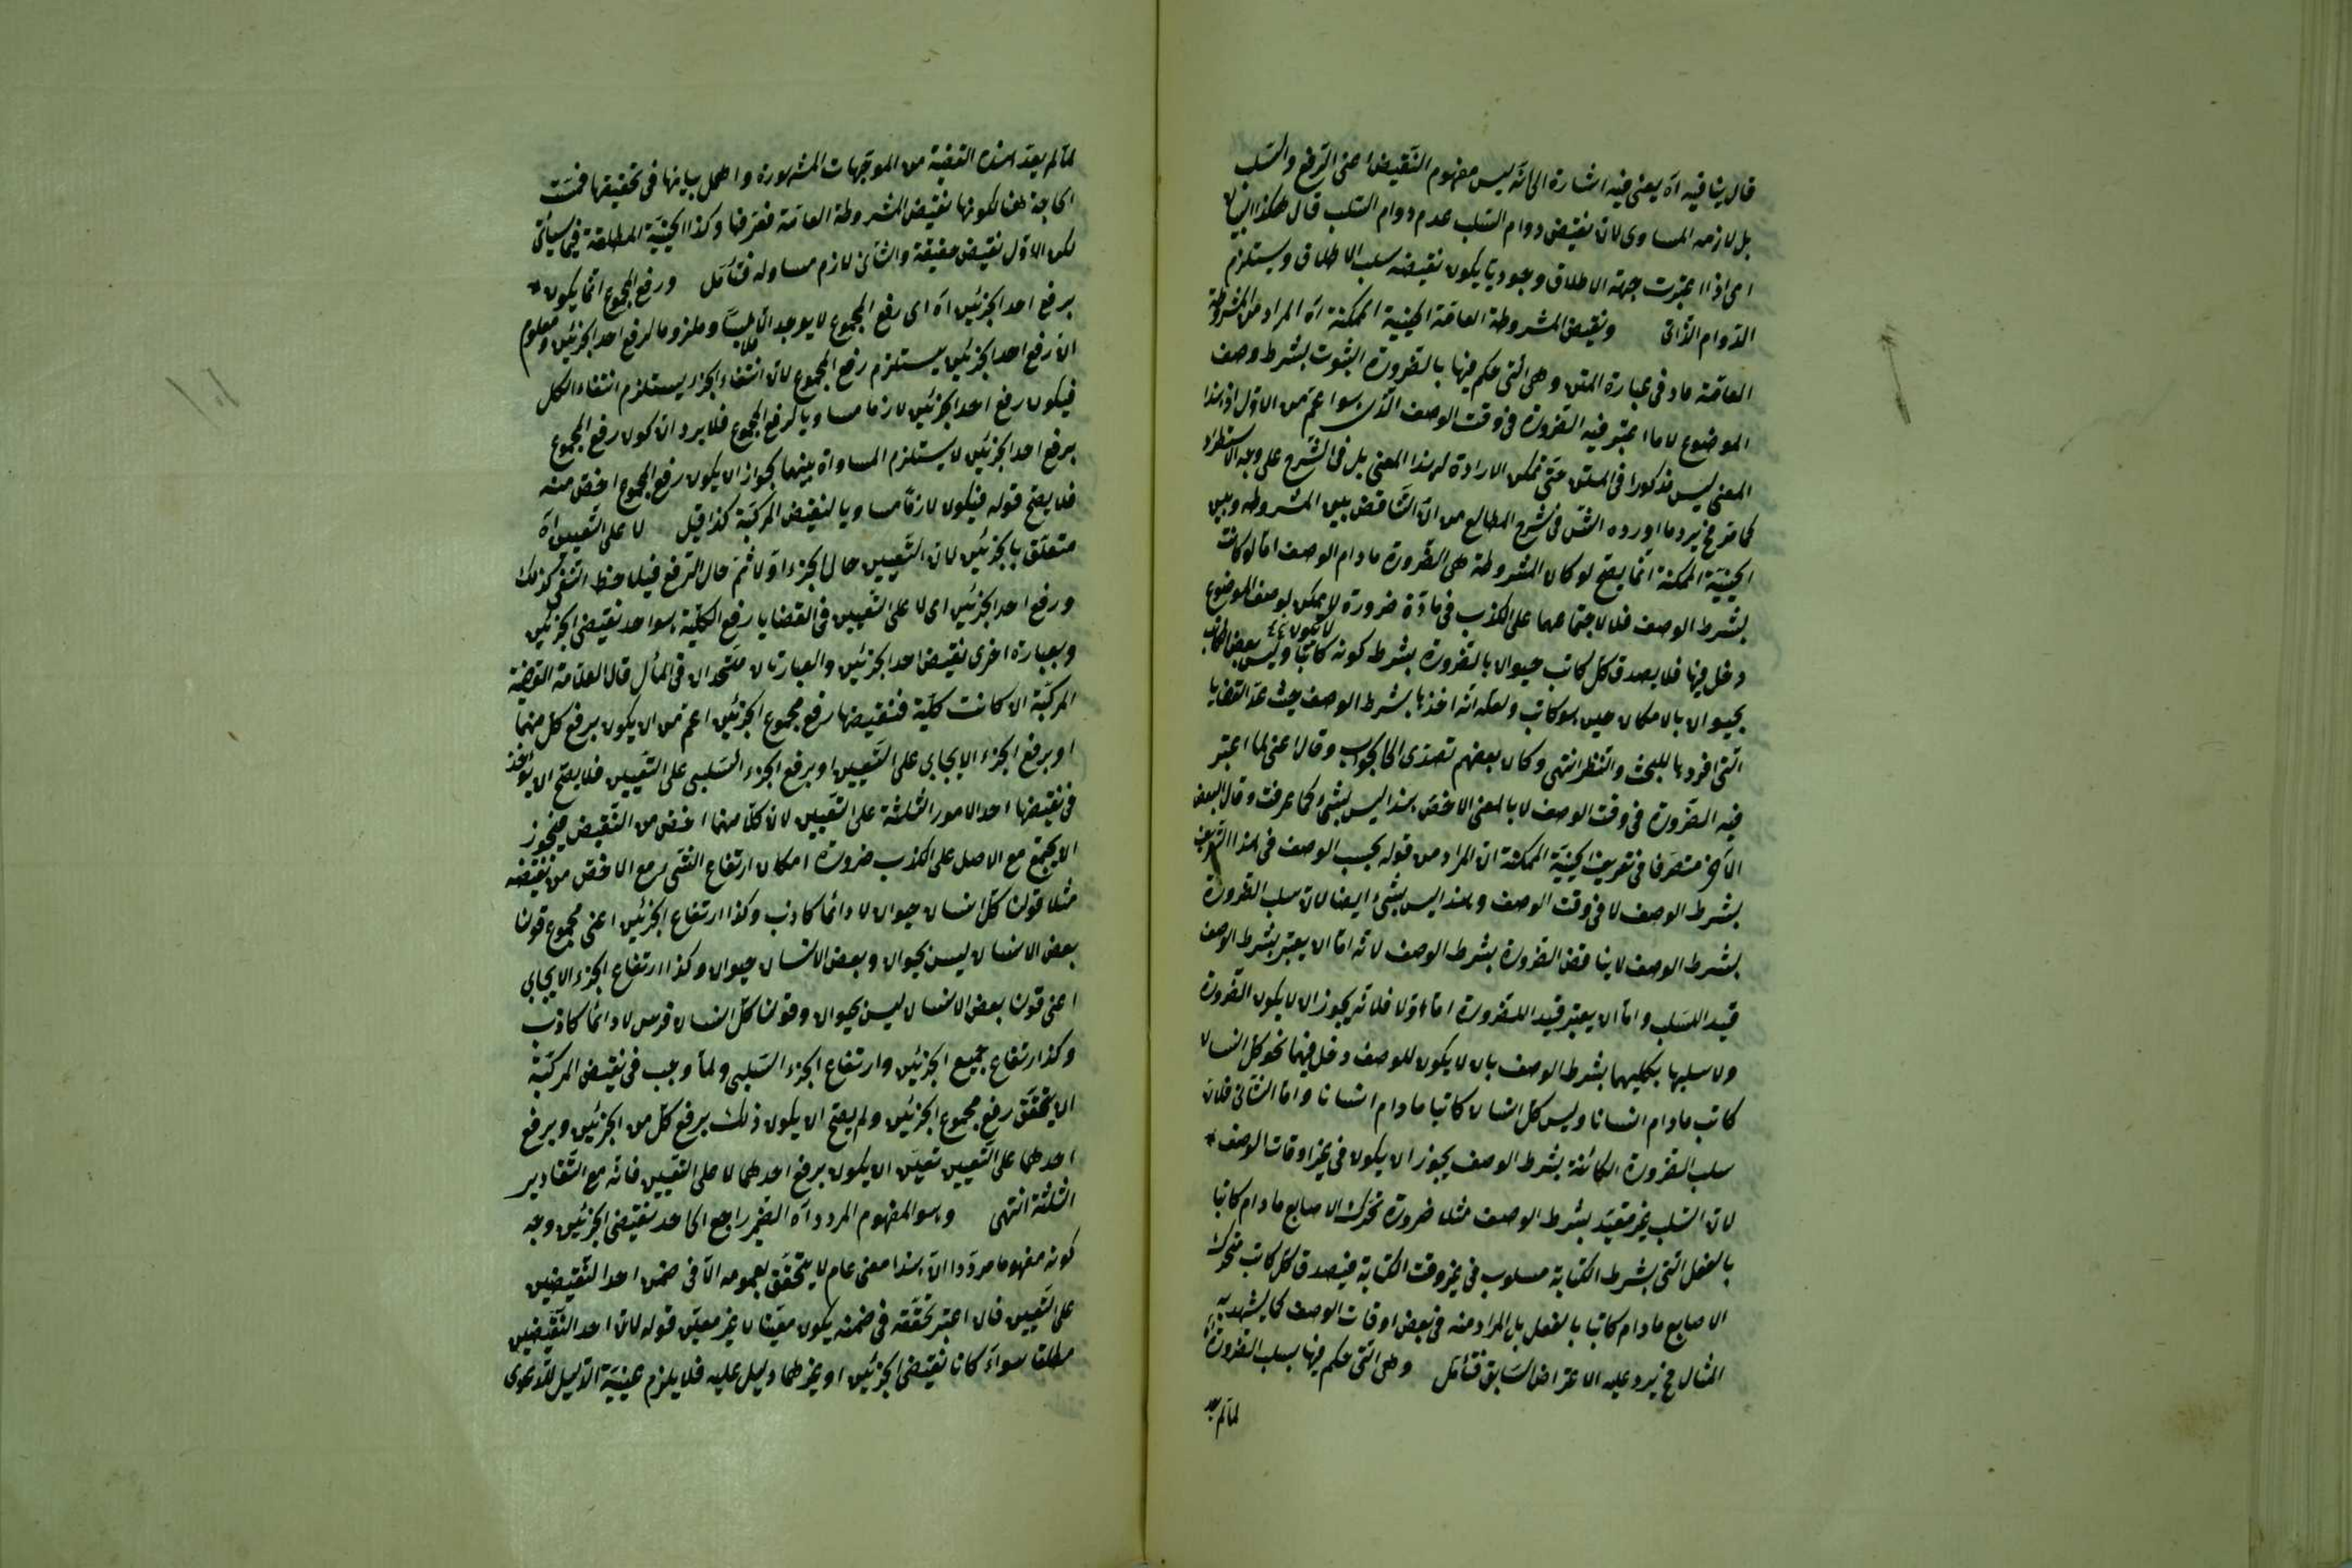 قال ينافيه آه يعنى فيه اشارة الى انّه ليس مفهوم النّقيض اعنى الرّفع والسّلب
بل لازمه المساوى لانّ نقيض دوام السّلب عدم دوام السّلب قال هكذا
اى اذا اعتبرت جهة الاطلاق وجوديّا يكون نقيضه سلب الاطلاق ويستلزم
الدّوام الذّاتى ونقيض المشروطة العامّة الحينيّة الممكنة آه المراد من المشروطة
العامّة ماد فى عبارة المتن وهى الّتى حكم فيها بالضّرورة الثبوت بشرط وصف
الموضوع لا ما اعتبر فيه الضّرورة فى وقت الوصف الّذى هو اعمّ من الاوّل اذ هذا
المعنى ليس مذكورا فى المتن حتّى يمكن الارادة لهذا المعنى بل فى الشّرح على وجه الاستطراد
كما مرّ فح يرد ما اورده الشّ فى شرح المطالع من انّ التّناقض بين المشروطه وبين
الحينيّة الممكنة انّما يصحّ لو كان المشروطة هى الضّرورة مادام الوصف امّا لو كانت
بشرط الوصف فلا لاجتماعهما على الكذب فى مادّة ضرورة لا يمكن لوصف الموضوع
دخل فيها فلا يصدق كلّ كاتب حيوان بالضّرورة بشرط كونه كاتبا وليس بعض الكاتب
بحيوان بالامكان حين هو كاتب ولعلّه انّه اخذها بشرط الوصف حيث عدّ القضايا
الّتى افردها للبحث والنّظر انتهى وكان بعضهم تصدّى الى الجواب وقال اعنى لما اعتبر
فيه الضّرورة فى وقت الوصف لا بالمعنى الاخصّ هذا ليس بشئ كما عرفت وقال البعض
الآخر متصرّفا فى تعريف الحينيّة الممكنة ان المراد من قوله بحسب الوصف فى هذا التّعريف
بشرط الوصف لا فى وقت الوصف وهذا ليس بشئ ايضا لانّ سلب الضّرورة
بشرط الوصف لا يناقض الضّرورة بشرط الوصف لانّه امّا ان يعتبر بشرط الوصف
قيد السّلب وامّا ان يعتبر قيد الضّرورة امّا اوّلا فلانّه يجوز ان لا يكون الضّرورة
ولا سلبها بكليهما بشرط الوصف بان لا يكون للوصف دخل فيهما نحو كلّ انسان
كاتب مادام انسانا وليس كلّ انسان كاتبا مادام انسانا وامّا الثّانى فلانّ
سلب الضّرورة الكائنة بشرط الوصف يجوز ان يكون فى غير اوقات الوصف
لانّ السّلب غير مقيّد بشرط الوصف مثلا ضرورة تحرّك الاصابع مادام كاتبا
بالفعل الّتى بشرط الكتابة مسلوب فى غير وقت الكتابة فيصدق كلّ كاتب متحرّك
الاصابع مادام كاتبا بالفعل بل المراد منه فى بعض اوقات الوصف كما يشهد به
المثال فح يرد عليه الاعتراض السّابق فتأمّل وهى الّتى حكم فيها بسلب الضّرورة
لمّا لم يعد
لمّا لم يعدّ هذه القضيّة من الموجّهات المشهورة واهمل بيانها فى تحقيقها فمسّت
الحاجة هنا لكونها نقيض المشروطة العامّة فعرّفها وكذا الحينيّة المطلقة فيما سيأتى
لكن الاوّل نقيض حقيقة والثّانى لازم مساو له فتأمّل ورفع المجموع انّما يكون
برفع احد الجزئين آه اى رفع المجموع لا يوجد الّا وملزوما لرفع احد الجزئين ومعلوم
انّ رفع احد الجزئين يستلزم رفع المجموع لانّ انتفاء الجزء يستلزم انتفاء الكل
فيكون رفع احد الجزئين لازما مساويا لرفع المجموع فلا يرد انّ كون رفع المجموع
برفع احد الجزئين لا يستلزم المساواة بينهما لجواز ان يكون رفع المجموع اخصّ منه
فلا يصحّ قوله فيكون لازمًا مساويا لنقيض المركّبة كذا قيل لا على التّعيين آه
متعلّق بالجزئين لانّ التّعيين حال الجزء اوّلا ثمّ حال الرّفع فيلاحظ النّفى كذلك
ورفع احد الجزئين اى لا على التّعيين فى القضايا رفع الكليّة هو احد نقيضى الجزئين
وبعبارة اخرى نقيض احد الجزئين والعبارتان متّحدان فى المأل قال العلّامة القضيّة
المركّبة ان كانت كلّية فنقيضها رفع مجموع الجزئين اعمّ من ان يكون برفع كلّ منهما
او برفع الجزء الايجابى على التّعيين او برفع الجزء السّلبى على التّعيين فلا يصحّ ان يؤخذ
فى نقيضها احد الامور الثّلثة على التّعيين لانّ كلّا منها اخصّ من النّقيض فيجوز
ان يجتمع مع الاصل على الكذب ضرورة امكان ارتفاع الشّئ مع الاخصّ من نقيضه
مثلا قولنا كلّ انسان حيوان لا دائما كاذب وكذا ارتفاع الجزئين اعنى مجموع قولنا
بعض الانسان ليس بحيوان وبعض الانسان حيوان وكذا ارتفاع الجزء الايجابى
اعنى قولنا بعض الانسان ليس بحيوان وقولنا كلّ انسان فرس لا دائما كاذب
وكذا ارتفاع جميع الجزئين وارتفاع الجزء السّلبى ولمّا وجب فى نقيض المركّبة
ان يتحقّق رفع مجموع الجزئين ولم يصحّ ان يكون ذلك برفع كلّ من الجزئين وبرفع
احدهما على التّعيين تعيّن ان يكون برفع احدهما لا على التّعيين فانّه مع التّقادير
الثلثة انتهى وهو المفهوم المردد آه الضّمير راجع الى احد نقيضى الجزئين وجه
كونه مفهوما مردّدا انّ هذا معنى عام لا يتحقّق بعمومه الّا فى ضمن احد النّقيضين
على التّعيين فان اعتبر تحقّقه فى ضمنه يكون معيّنا لا غير معيّن قوله لانّ احد النّقيضين
مطلقا سواء كانا نقيضى الجزئين او غيرهما دليل عليه فلا يلزم عينيّة الدّليل للدّعوى